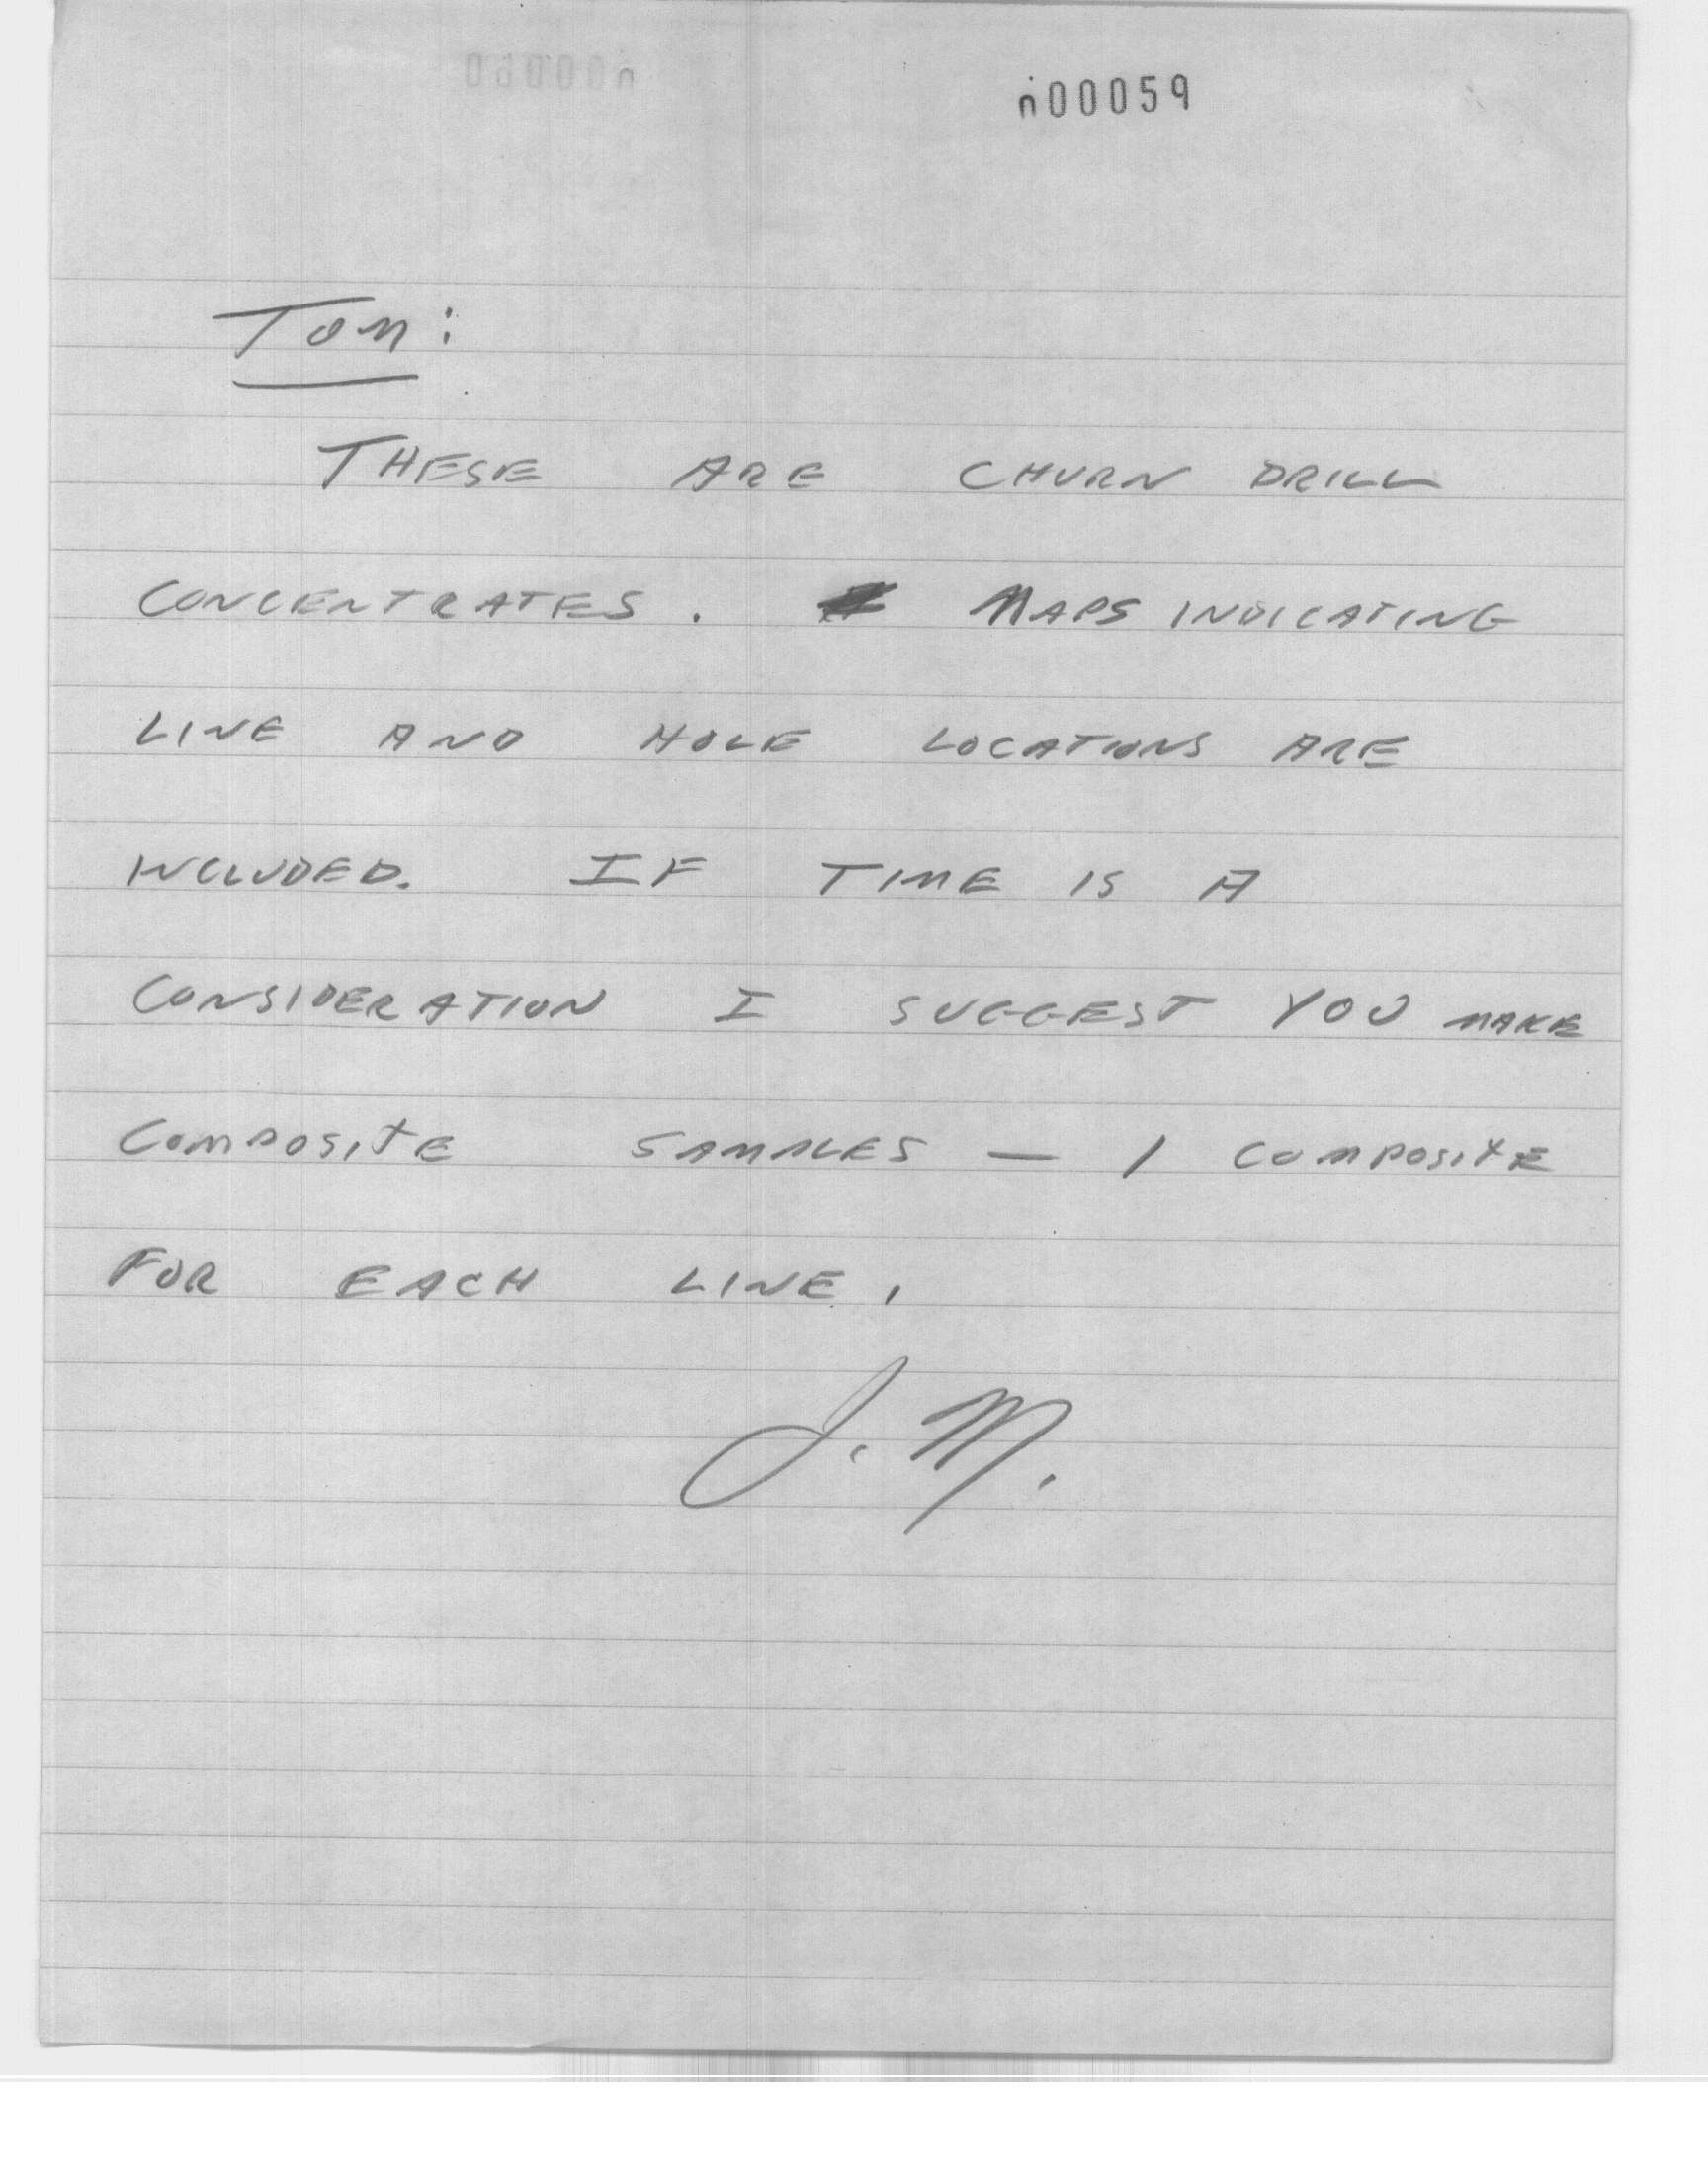 n00059
Tom:
THESE ARE CHURN DRILL
CONCENTRATES. MAPS INDICATING
LINE AND HOLE LOCATIONS ARE
INCLUDED. IF TIME IS A
CONSIDERATION I SUGGEST YOU MAKE
COMPOSITE SAMPLES — 1 COMPOSITE
FOR EACH LINE.
J.M.